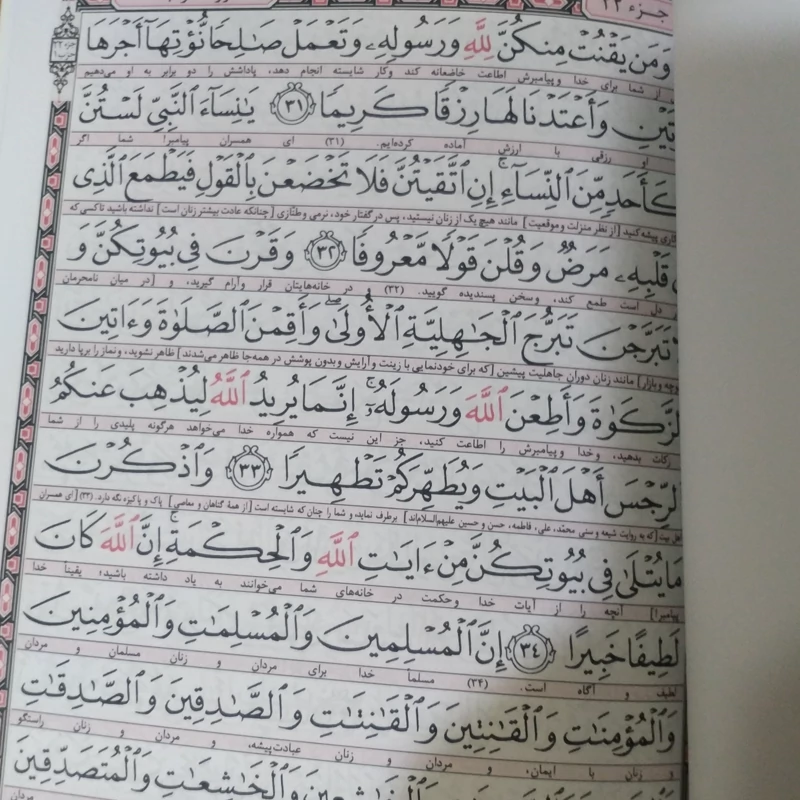 جزء ۲۲
وَمَن يَقْنُتْ مِنكُنَّ لِلَّهِ وَرَسُولِهِۦ وَتَعْمَلْ صَـٰلِحًا نُّؤْتِهَآ أَجْرَهَا
از شما برای خدا و پیامبرش اطاعت خاضعانه کند و کار شایسته انجام دهد، پاداشش را دو برابر به او می‌دهیم
تَيْنِ وَأَعْتَدْنَا لَهَا رِزْقًا كَرِيمًا ﴿٣١﴾ يَـٰنِسَآءَ ٱلنَّبِىِّ لَسْتُنَّ
او رزقی با ارزش آماده کرده‌ایم. (۳۱) ای همسران پیامبر! شما اگر
كَأَحَدٍ مِّنَ ٱلنِّسَآءِ ۚ إِنِ ٱتَّقَيْتُنَّ فَلَا تَخْضَعْنَ بِٱلْقَوْلِ فَيَطْمَعَ ٱلَّذِى
کاری پیشه کنید [از نظر منزلت و موقعیت] مانند هیچ یک از زنان نیستید، پس در گفتار خود، نرمی و طنّازی [چنانکه عادت بیشتر زنان است] نداشته باشید تا کسی که
قَلْبِهِۦ مَرَضٌ وَقُلْنَ قَوْلًا مَّعْرُوفًا ﴿٣٢﴾ وَقَرْنَ فِى بُيُوتِكُنَّ وَ
دل است طمع کند، و سخن پسندیده گویید. (۳۲) و در خانه‌هایتان قرار و آرام گیرید، و [در میان نامحرمان
تَبَرَّجْنَ تَبَرُّجَ ٱلْجَـٰهِلِيَّةِ ٱلْأُولَىٰ ۖ وَأَقِمْنَ ٱلصَّلَوٰةَ وَءَاتِينَ
وچه و بازار] مانند زنان دوران جاهلیت پیشین [که برای خودنمایی با زینت و آرایش و بدون پوشش در همه‌جا ظاهر می‌شدند] ظاهر نشوید، و نماز را برپا دارید
ٱلزَّكَوٰةَ وَأَطِعْنَ ٱللَّهَ وَرَسُولَهُۥٓ ۚ إِنَّمَا يُرِيدُ ٱللَّهُ لِيُذْهِبَ عَنكُمُ
زکات بدهید، و خدا و پیامبرش را اطاعت کنید، جز این نیست که همواره خدا می‌خواهد هرگونه پلیدی را از شما
ٱلرِّجْسَ أَهْلَ ٱلْبَيْتِ وَيُطَهِّرَكُمْ تَطْهِيرًا ﴿٣٣﴾ وَٱذْكُرْنَ
اهل بیت [که به روایت شیعه و سنی محمّد، علی، فاطمه، حسن و حسین علیهم‌السلام‌اند] برطرف نماید، و شما را چنان که شایسته است [از همۀ گناهان و معاصی] پاک و پاکیزه نگه دارد. (۳۳) [ای همسران
مَا يُتْلَىٰ فِى بُيُوتِكُنَّ مِنْ ءَايَـٰتِ ٱللَّهِ وَٱلْحِكْمَةِ ۚ إِنَّ ٱللَّهَ كَانَ
پیامبر!] آنچه را از آیات خدا و حکمت در خانه‌های شما می‌خوانند به یاد داشته باشید؛ یقیناً خدا
لَطِيفًا خَبِيرًا ﴿٣٤﴾ إِنَّ ٱلْمُسْلِمِينَ وَٱلْمُسْلِمَـٰتِ وَٱلْمُؤْمِنِينَ
لطیف و آگاه است. (۳۴) مسلماً خدا برای مردان و زنان مسلمان و مردان
وَٱلْمُؤْمِنَـٰتِ وَٱلْقَـٰنِتِينَ وَٱلْقَـٰنِتَـٰتِ وَٱلصَّـٰدِقِينَ وَٱلصَّـٰدِقَـٰتِ
و زنان با ایمان، و مردان و زنان عبادت‌پیشه، و مردان و زنان راستگو
وَٱلْخَـٰشِعِينَ وَٱلْخَـٰشِعَـٰتِ وَٱلْمُتَصَدِّقِينَ